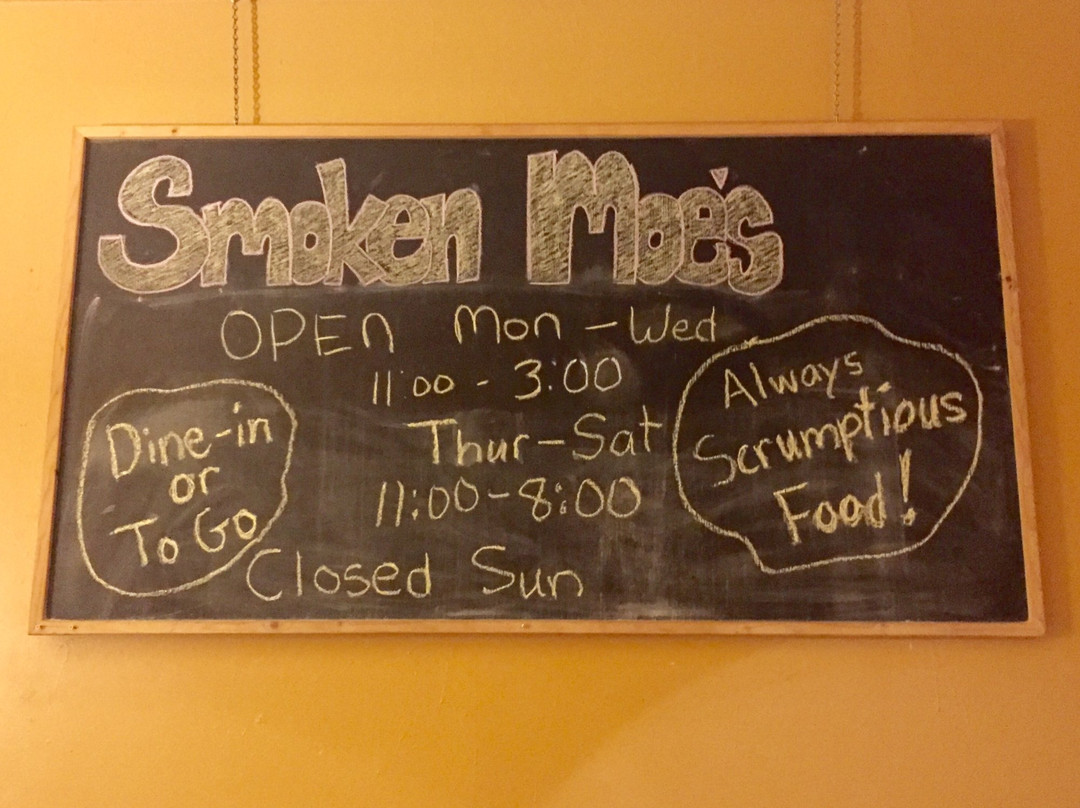 Smoken Moe's
OPEN Mon - Wed
11:00 - 3:00
Thur - Sat
11:00 - 8:00
Closed Sun
Dine-in
or
To Go
Always
Scrumptious
Food!